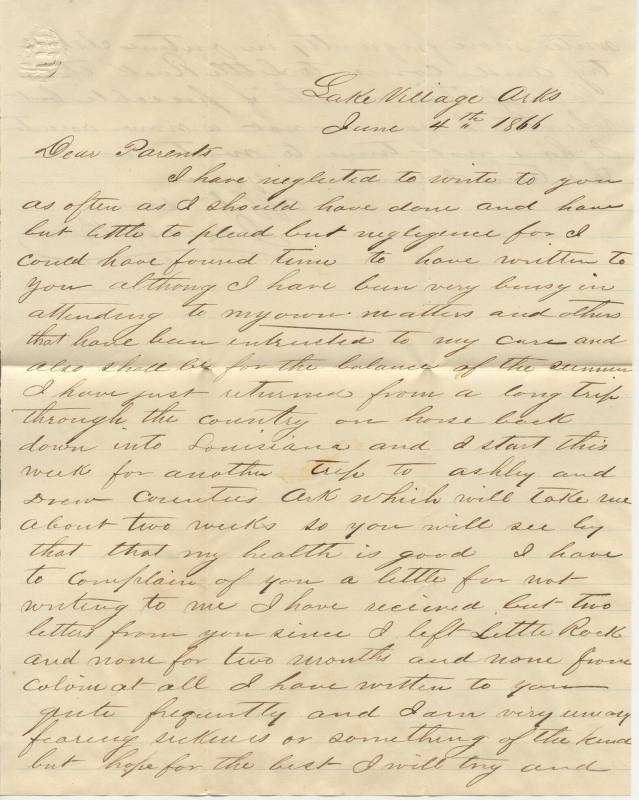 Lake Village Arks
June 4th 1866
Dear Parents
I have neglected to write to you
as often as I should have done and have
but little to plead but negligence for I
could have found time to have written to
you althoug I have been very buisy in
attending to my own matters and others
that have been intrusted to my care and
also shall be for the balance of the summer
I have just returned from a long trip
through the country on horse back
down into Louisiana and I start this
week for another trip to ashley and
Drew Counties Ark which will take me
about two weeks so you will see by
that that my health is good I have
to complain of you a little for not
writing to me I have recieved but two
letters from you since I left Little Rock
and none for two months and none from
at all I have written to you
quite frequently and I am very uneasy
fearing sickness or something of the kind
but hope for the best I will try and